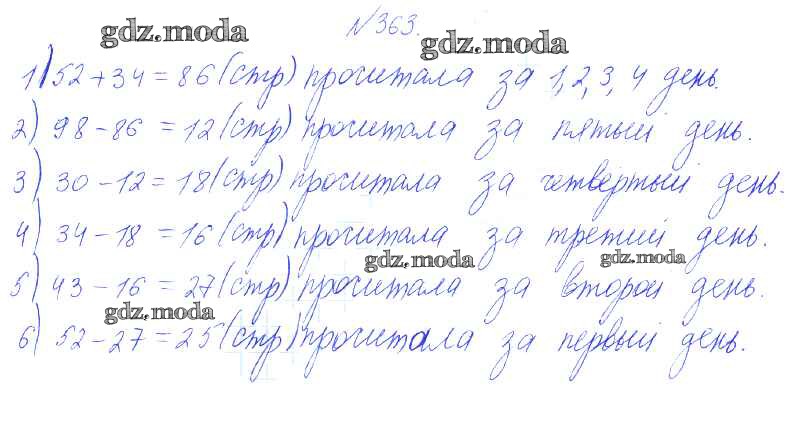 №363.
gdz.moda
gdz.moda
1) 52 + 34 = 86 (стр) прочитала за 1, 2, 3, 4 день.
2) 98 - 86 = 12 (стр) прочитала за пятый день.
3) 30 - 12 = 18 (стр) прочитала за четвёртый день.
4) 34 - 18 = 16 (стр) прочитала за третий день.
gdz.moda
gdz.moda
5) 43 - 16 = 27 (стр) прочитала за второй день.
gdz.moda
6) 52 - 27 = 25 (стр) прочитала за первый день.